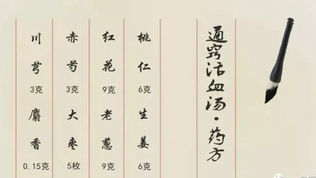 通窍活血汤·药方
桃仁
6克
生姜
6克
红花
9克
老葱
9克
赤芍
3克
大枣
5枚
川芎
3克
麝香
0.15克